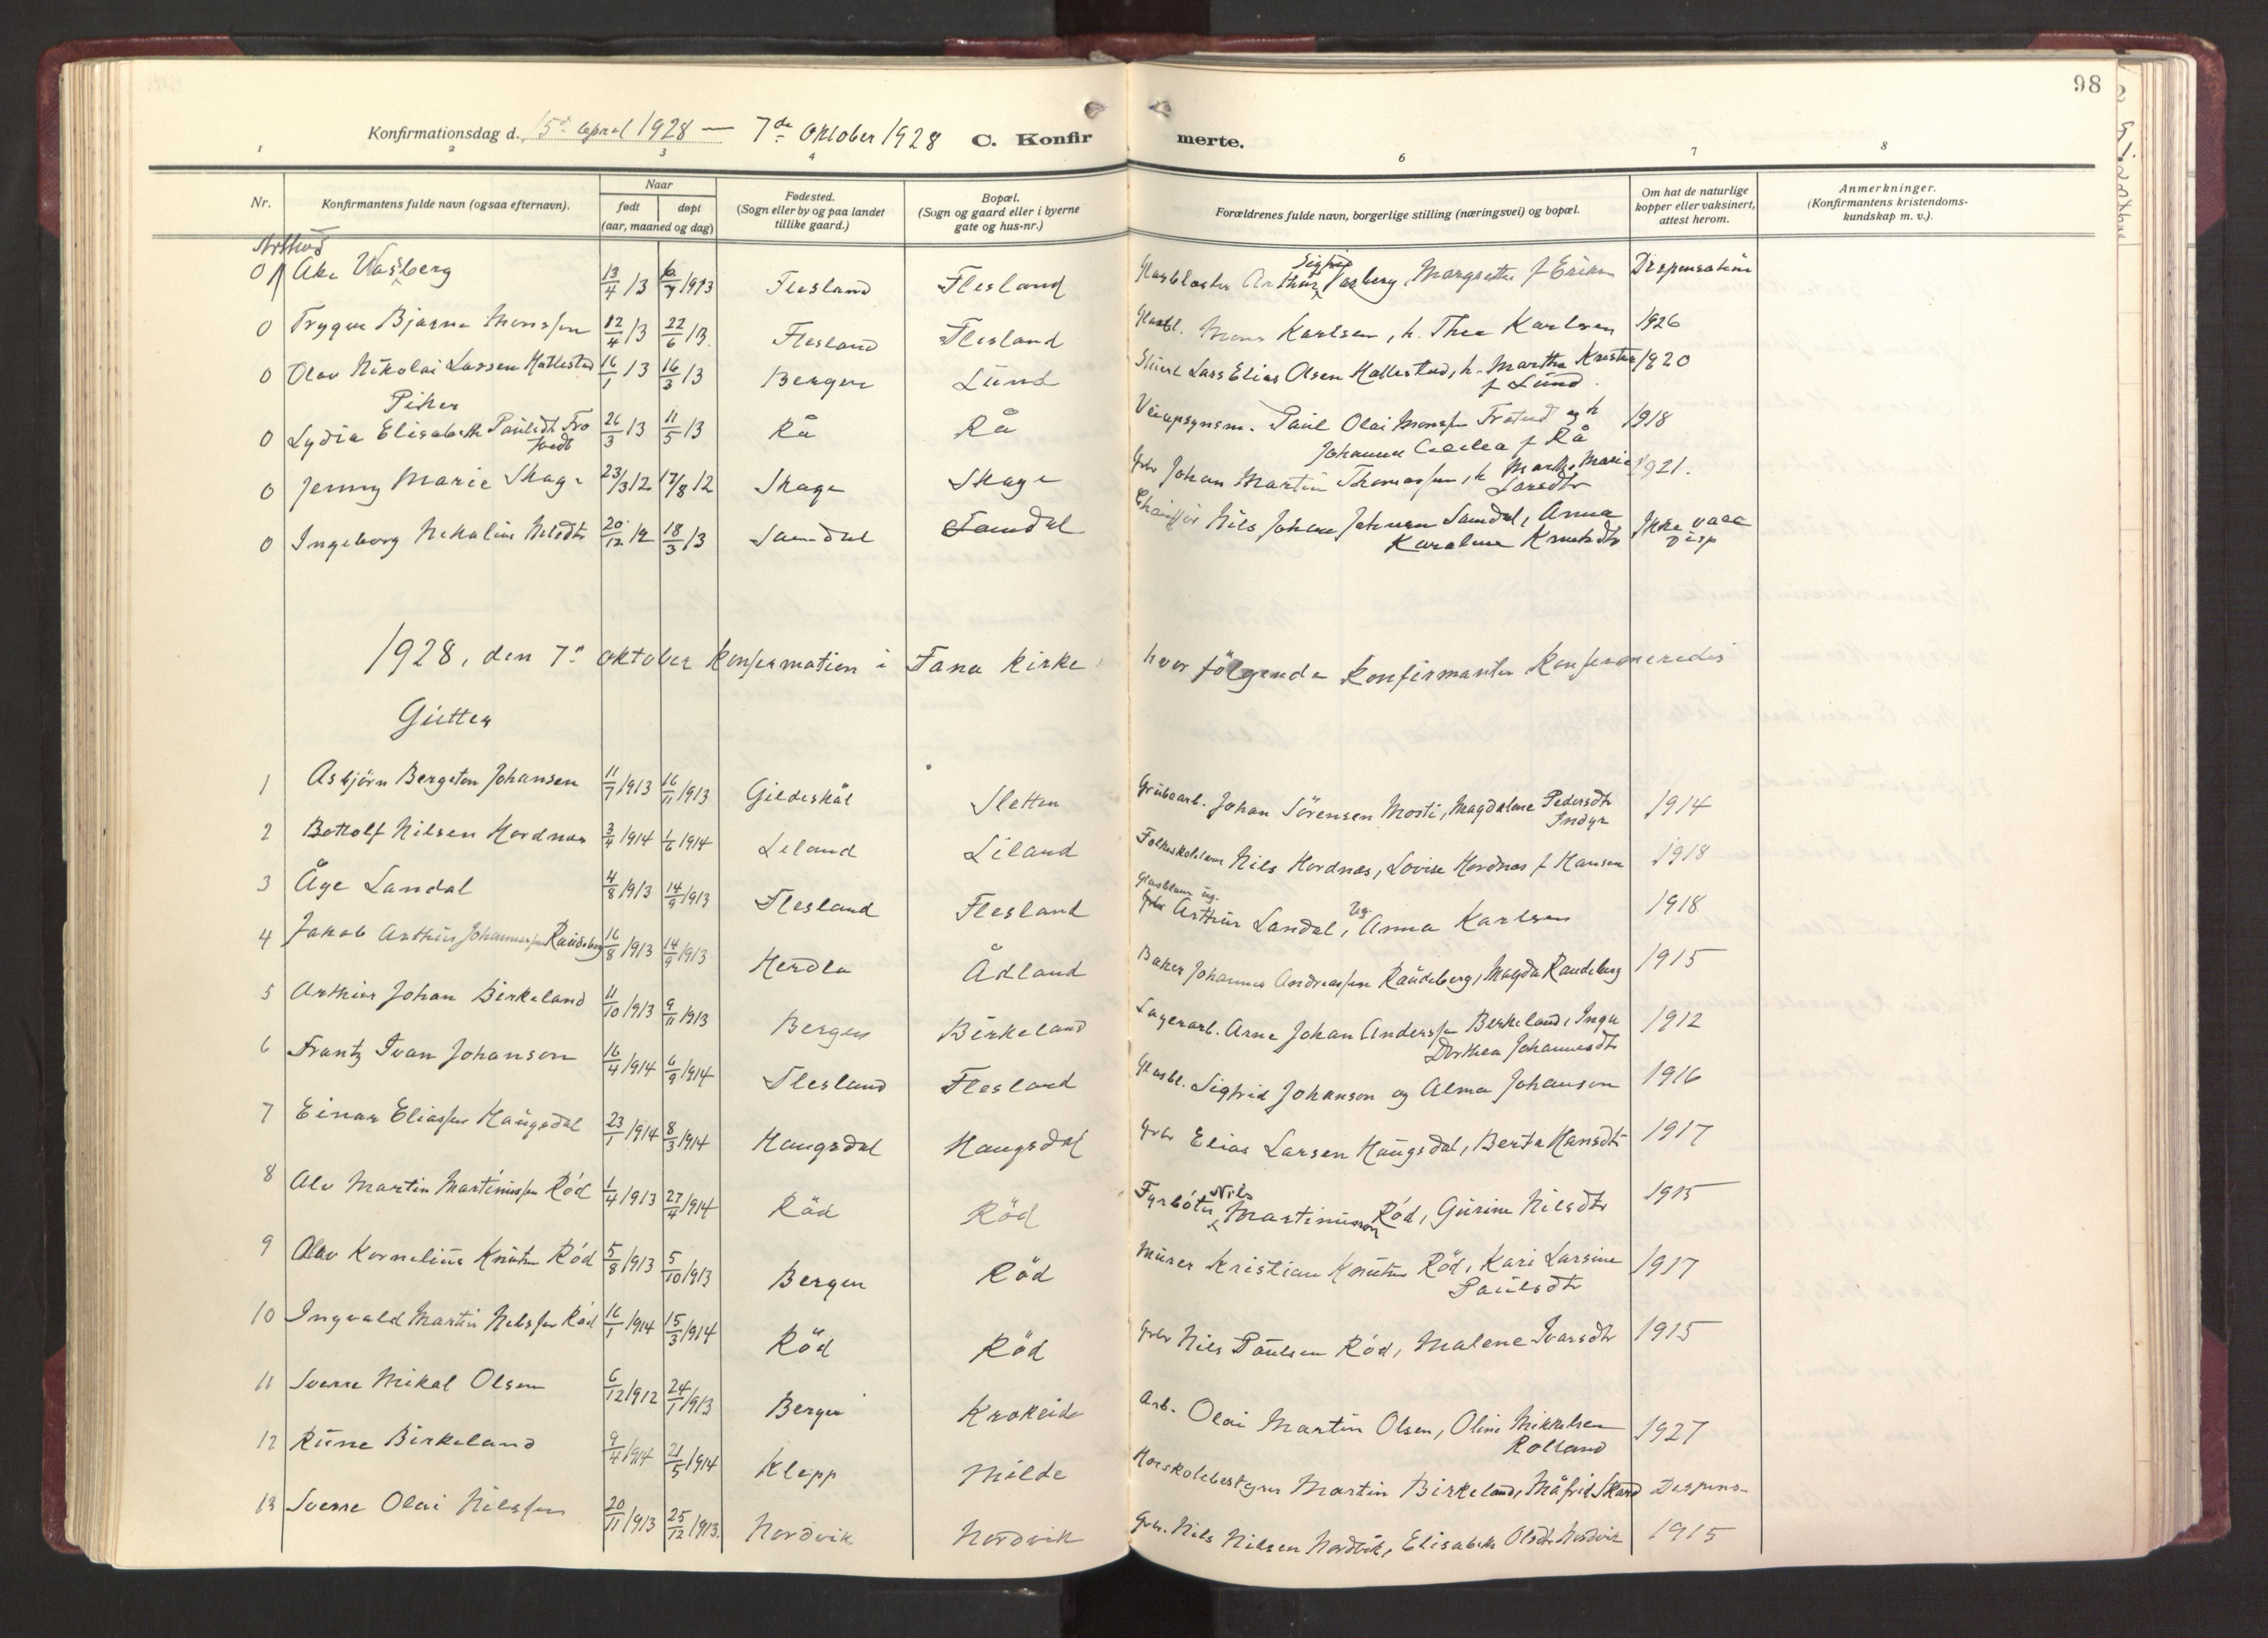 98
Konfirmationsdag d. 15d April 1928 — 7de Oktober 1928 C. Konfir merte.
1 2 3 4 6 7 8
Nr. Konfirmantens fulde navn (ogsaa efternavn). Naar født døpt (aar, maaned og dag) Fødested. (Sogn eller by og paa landet tillike gaard.) Bopæl. (Sogn og gaard eller i byerne gate og hus-nr.) Forældrenes fulde navn, borgerlige stilling (næringsvei) og bopæl. Om hat de naturlige kopper eller vaksinert, attest herom. Anmerkninger. (Konfirmantens kristendoms-kundskap m. v.).
0 Åke Wasberg 13/4 13 /7 1913 Flesland Flesland Glasblaser Arthur Sigfrid Vasberg, Margrethe f Dispensation
0 Trygve Bjarne Monssen 12/4 13 22/6 13. Flesland Flesland Glasbl. Mons Karlsen, h. Thea Karlsen 1926
0 Olav Nikolai Larsen Hallestad 16/1 13 16/3 13 Bergen Lund Lars Elias Olsen Hallestad, h. Martha f Lund. 1920
Piker
0 Lydia Elisabeth Paulsdtr 26/3 13 11/5 13 Rå Rå Paul Olai Monssen og h Johanna f Rå 1918
0 Jenny Marie Skage 23/3 12 17/8 12 Skage Skage Gbr Johan Martin Thomassen, h Marthe Marie Larsdtr 1921.
0 Ingeborg Nikoline Nilsdtr 20/12 12 18/3 13 Samdal Samdal Chauffør Nils Johan Johnsen Samdal, Anna Karoline Knutsdtr Ikke vacc Disp
1928, den 7de oktober Konfirmation i Fana Kirke, hvor følgende Konfirmanter Konfirmeredes
Gutter
1 Asbjörn Bergeton Johansen 11/7 1913 16/11 1913 Gildeskål Sletten Grubearb. Johan Sörensen Mosti, Magdalene Pedersdtr Indyr 1914
2 Bottolf Nilsen Hordnes 3/4 1914 1/6 1914 Liland Liland Nils Hordnes, Lovise Hordnes f Hansen 1918
3 Åge Landal 4/8 1913 14/9 1913 Flesland Flesland Arthur Landal, Ug. Anna Karlsen 1918
4 Jakob Arthur Johannessen Raudeberg 16/8 1913 14/9 1913 Herdla Ådland Baker Johannes Andreassen Raudeberg, Magda Raudeberg 1915
5 Arthur Johan Birkeland 11/10 1913 9/11 1913 Bergen Birkeland Lagerarb. Arne Johan Anderssen Berkeland, Inga Dorthea Johannesdtr 1912
6 Frantz Ivan Johanson 16/4 1914 6/9 1914 Flesland Flesland Glasbl. Sigfrid Johanson og Alma Johanson 1916
7 Einar Eliassen Haugsdal 23/1 1914 8/3 1914 Haugsdal Haugsdal Gbr Elias Larsen Haugsdal, Berta Hansdtr 1917
8 Alv Martin Martinussen Röd 1/4 1913 27/4 1914 Röd Röd Fyrböter Nils Martinusson Röd, Gurine Nilsdtr 1915
9 Olav Kornelius Knutsen Röd 5/8 1913 5/10 1913 Bergen Röd Murer Kristian Knutsen Röd, Kari Larsine Paulsdtr 1917
10 Ingvald Martin Nilssen Röd 16/1 1914 15/3 1914 Röd Röd Gbr Nils Paulsen Röd, Malene Ivarsdtr 1915
11 Sverre Mikal Olsen 6/12 1912 24/1 1913 Bergen Krokeide Arb. Olai Martin Olsen, Oline Mikkelsen Rolland 1927
12 Rune Birkeland 9/4 1914 21/5 1914 Klepp Milde Martin Birkeland, Måfrid Skard Dispens-
13 Sverre Olai Nilssen 20/11 1913 25/12 1913. Nordvik Nordvik Gbr. Nils Nilsen Nordvik, Elisabeth Olsdtr Nordvik 1915